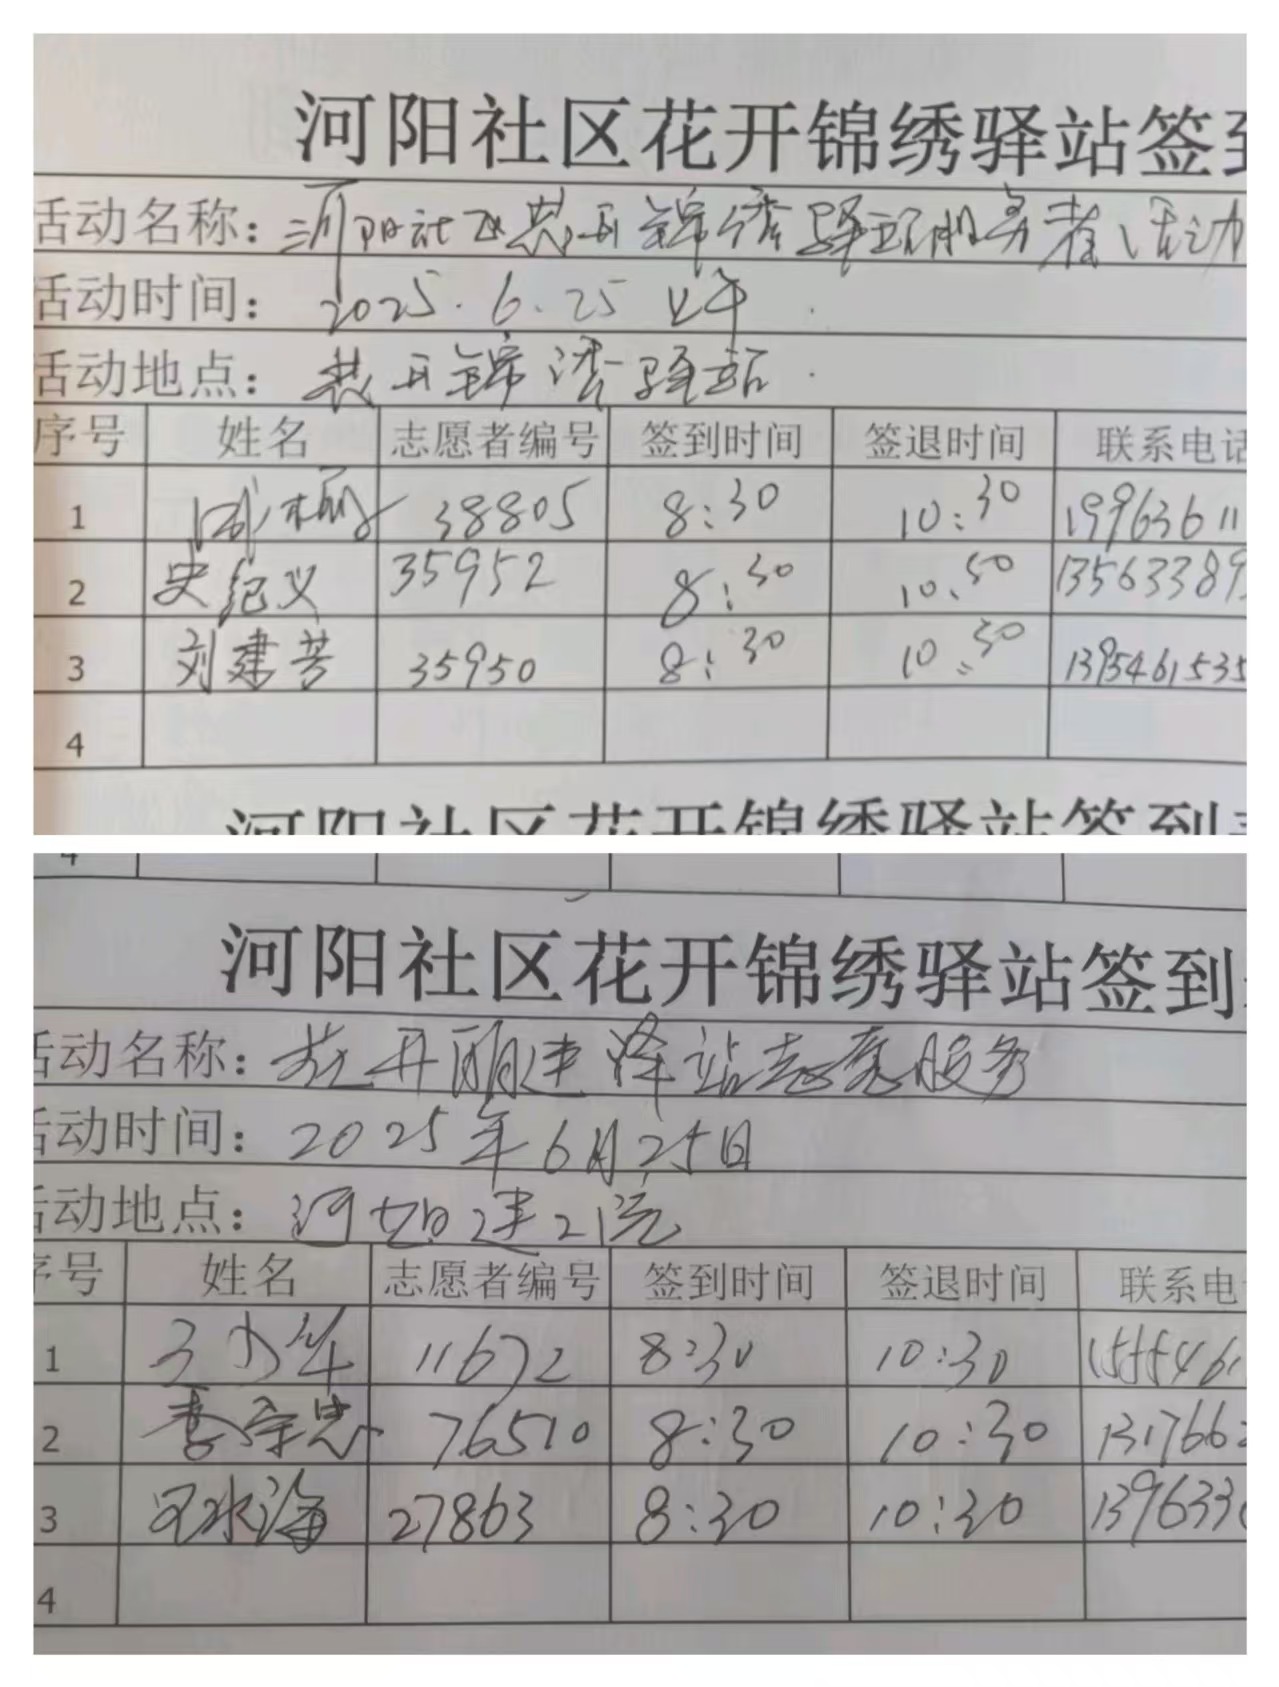 河阳社区花开锦绣驿站签到
活动名称：河阳社区花开锦绣驿站服务者活动
活动时间：2025.6.25 上午
活动地点：花开锦绣驿站
序号 姓名 志愿者编号 签到时间 签退时间 联系电话
1 38805 8:30 10:30 19963611
2 史纪义 35952 8:30 10:30 13563389
3 刘建芳 35950 8:30 10:30 1395461535
4
河阳社区花开锦绣驿站签到
4
河阳社区花开锦绣驿站签到
活动名称：花开 站志愿服务
活动时间：2025年6月25日
活动地点：河阳
序号 姓名 志愿者编号 签到时间 签退时间 联系电
1 11672 8:30 10:30 1555461
2 李守忠 76510 8:30 10:30 1317662
3 海 27863 8:30 10:30 139633
4